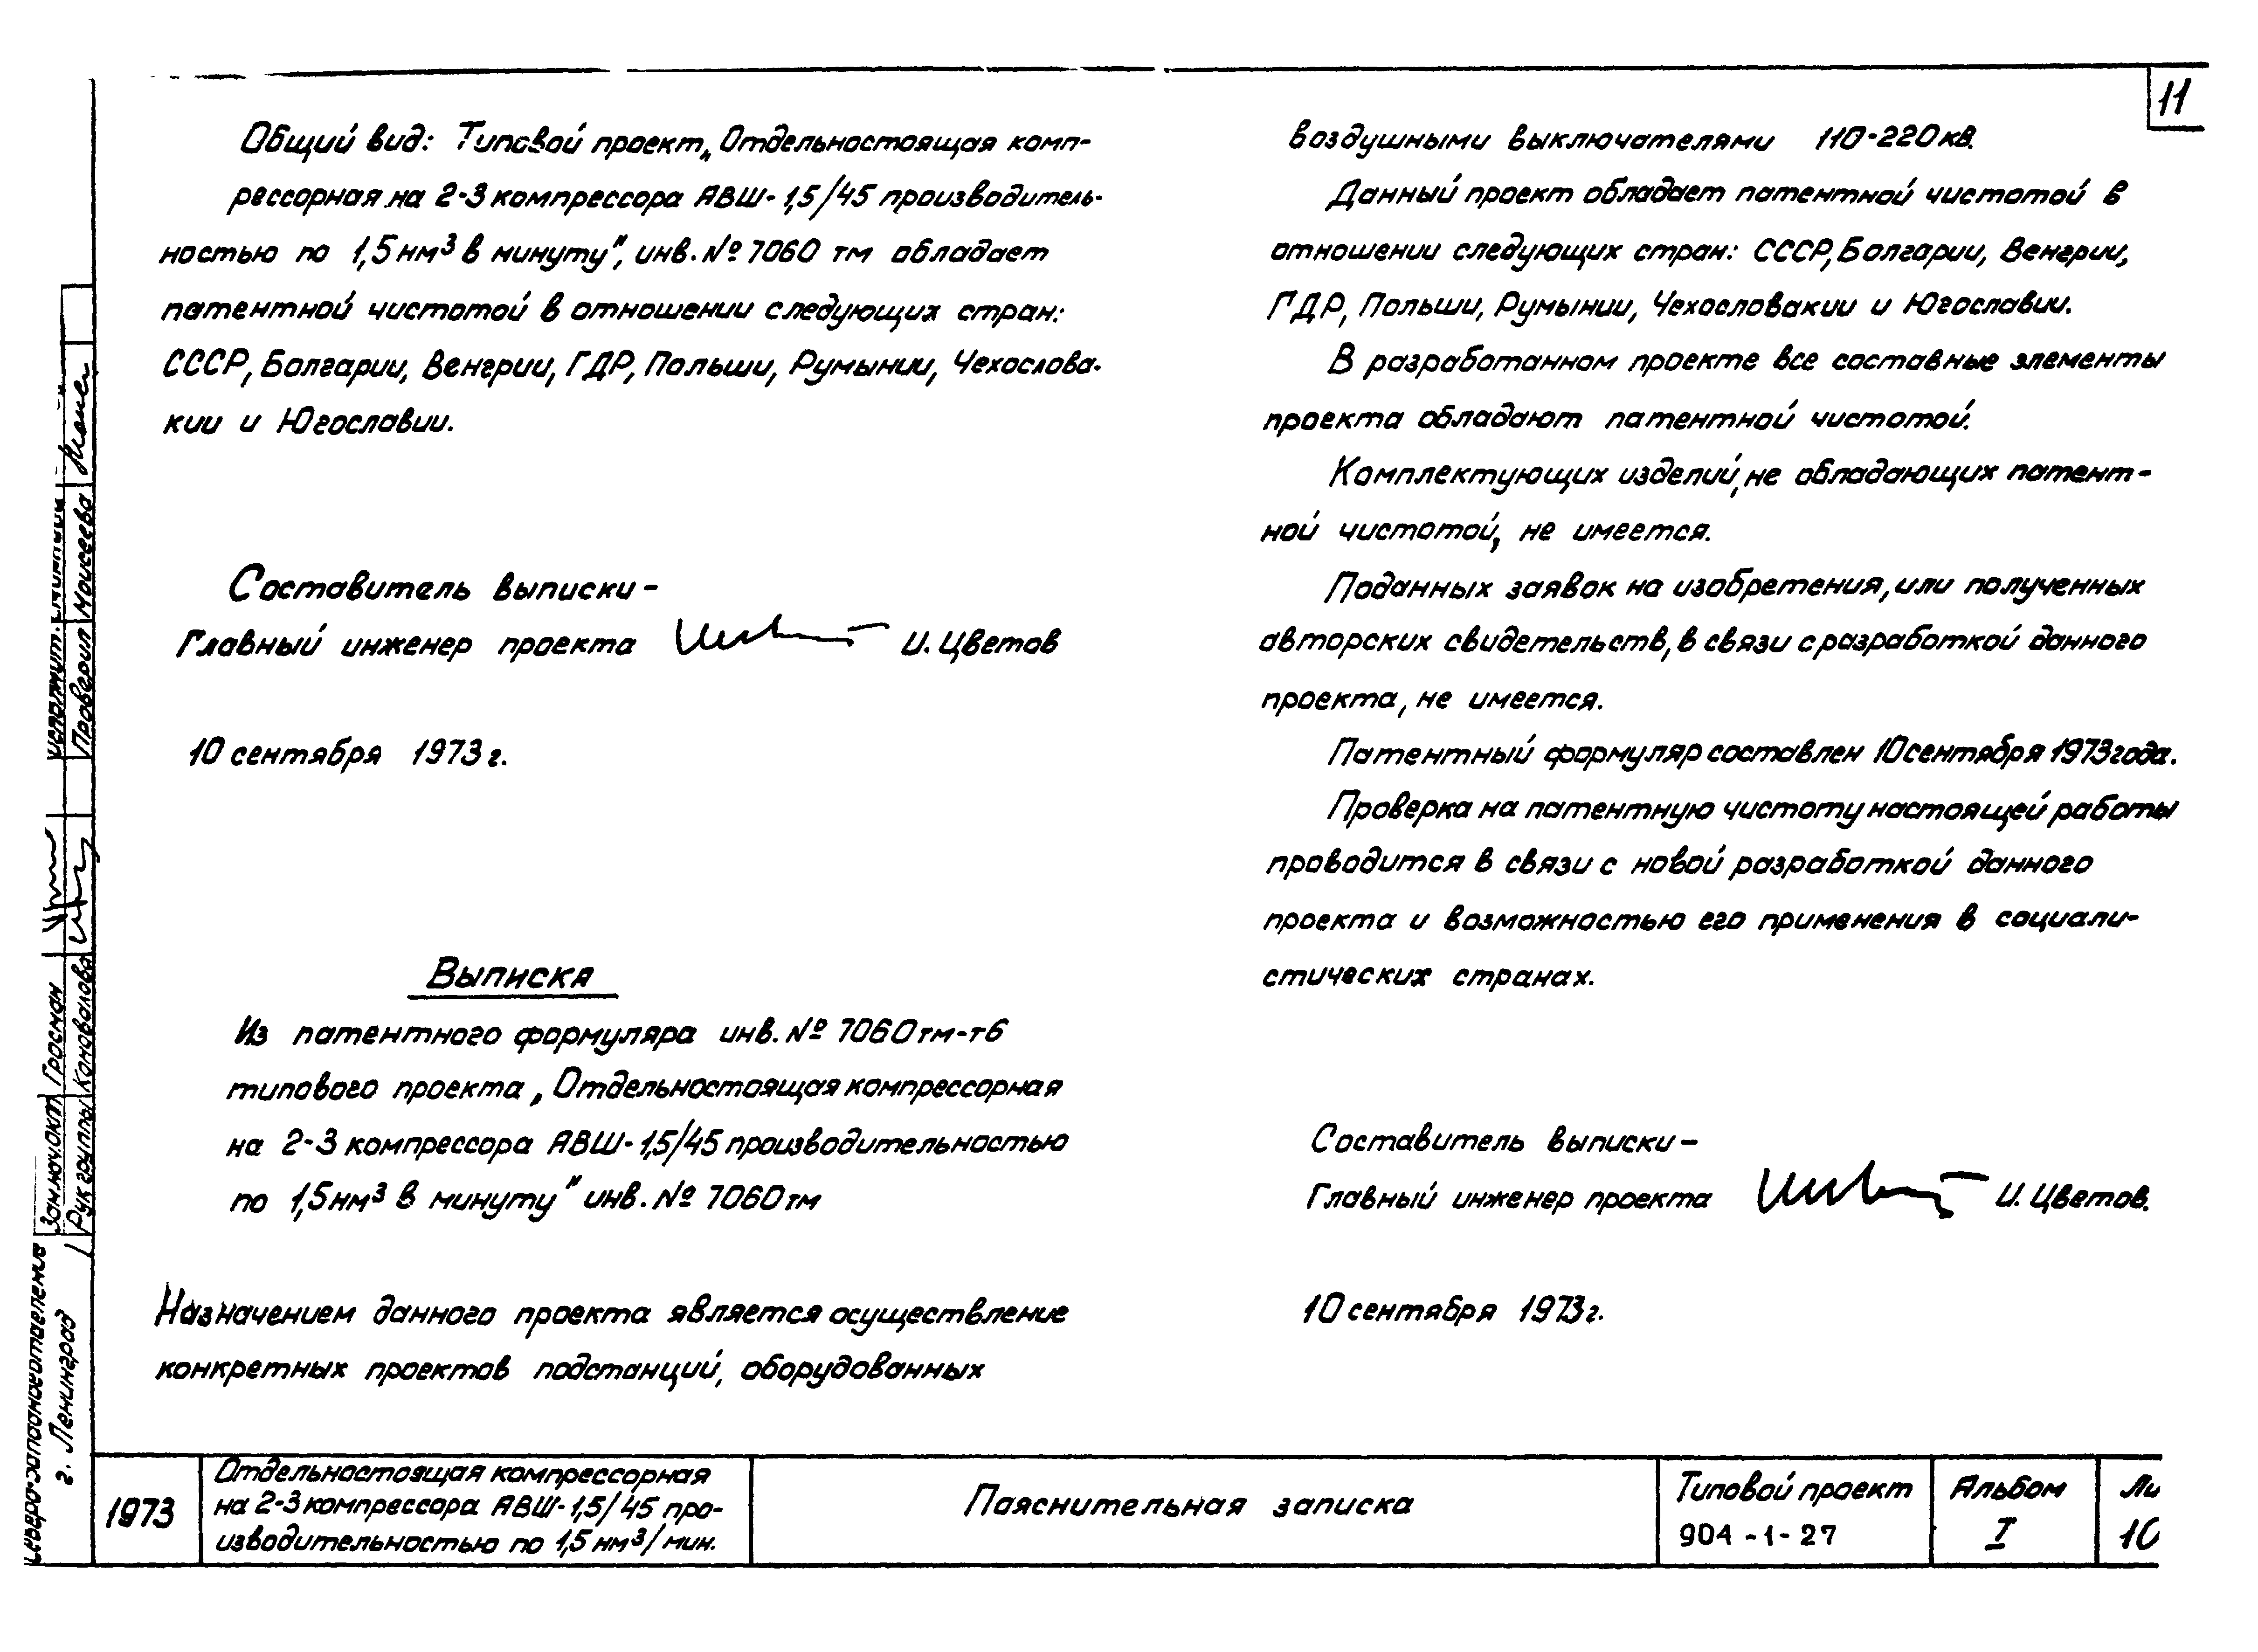 11
Общий вид: Типовой проект „Отдельностоящая комп-
рессорная на 2-3 компрессора АВШ-1,5/45 производитель-
ностью по 1,5 нм³ в минуту", инв. № 7060 тм обладает
патентной чистотой в отношении следующих стран:
СССР, Болгарии, Венгрии, ГДР, Польши, Румынии, Чехослова-
кии и Югославии.
Составитель выписки -
Главный инженер проекта И. Цветов
10 сентября 1973 г.
Выписка
Из патентного формуляра инв. № 7060 тм-т6
типового проекта „Отдельностоящая компрессорная
на 2-3 компрессора АВШ-1,5/45 производительностью
по 1,5 нм³ в минуту" инв. № 7060 тм
Назначением данного проекта является осуществление
конкретных проектов подстанций, оборудованных
воздушными выключателями 110-220 кв.
Данный проект обладает патентной чистотой в
отношении следующих стран: СССР, Болгарии, Венгрии,
ГДР, Польши, Румынии, Чехословакии и Югославии.
В разработанном проекте все составные элементы
проекта обладают патентной чистотой.
Комплектующих изделий, не обладающих патент-
ной чистотой, не имеется.
Поданных заявок на изобретения, или полученных
авторских свидетельств, в связи с разработкой данного
проекта, не имеется.
Патентный формуляр составлен 10 сентября 1973 года.
Проверка на патентную чистоту настоящей работы
проводится в связи с новой разработкой данного
проекта и возможностью его применения в социали-
стических странах.
Составитель выписки -
Главный инженер проекта И. Цветов.
10 сентября 1973 г.
Исполнит.
Проверил Моисеева
Зам.нач.ОКП Гросман
Рук группы Коновалова
Северо-Западное отделение
г. Ленинград
1973
Отдельностоящая компрессорная
на 2-3 компрессора АВШ-1,5/45 про-
изводительностью по 1,5 нм³/мин.
Пояснительная записка
Типовой проект
904-1-27
Альбом
I
Ли
10